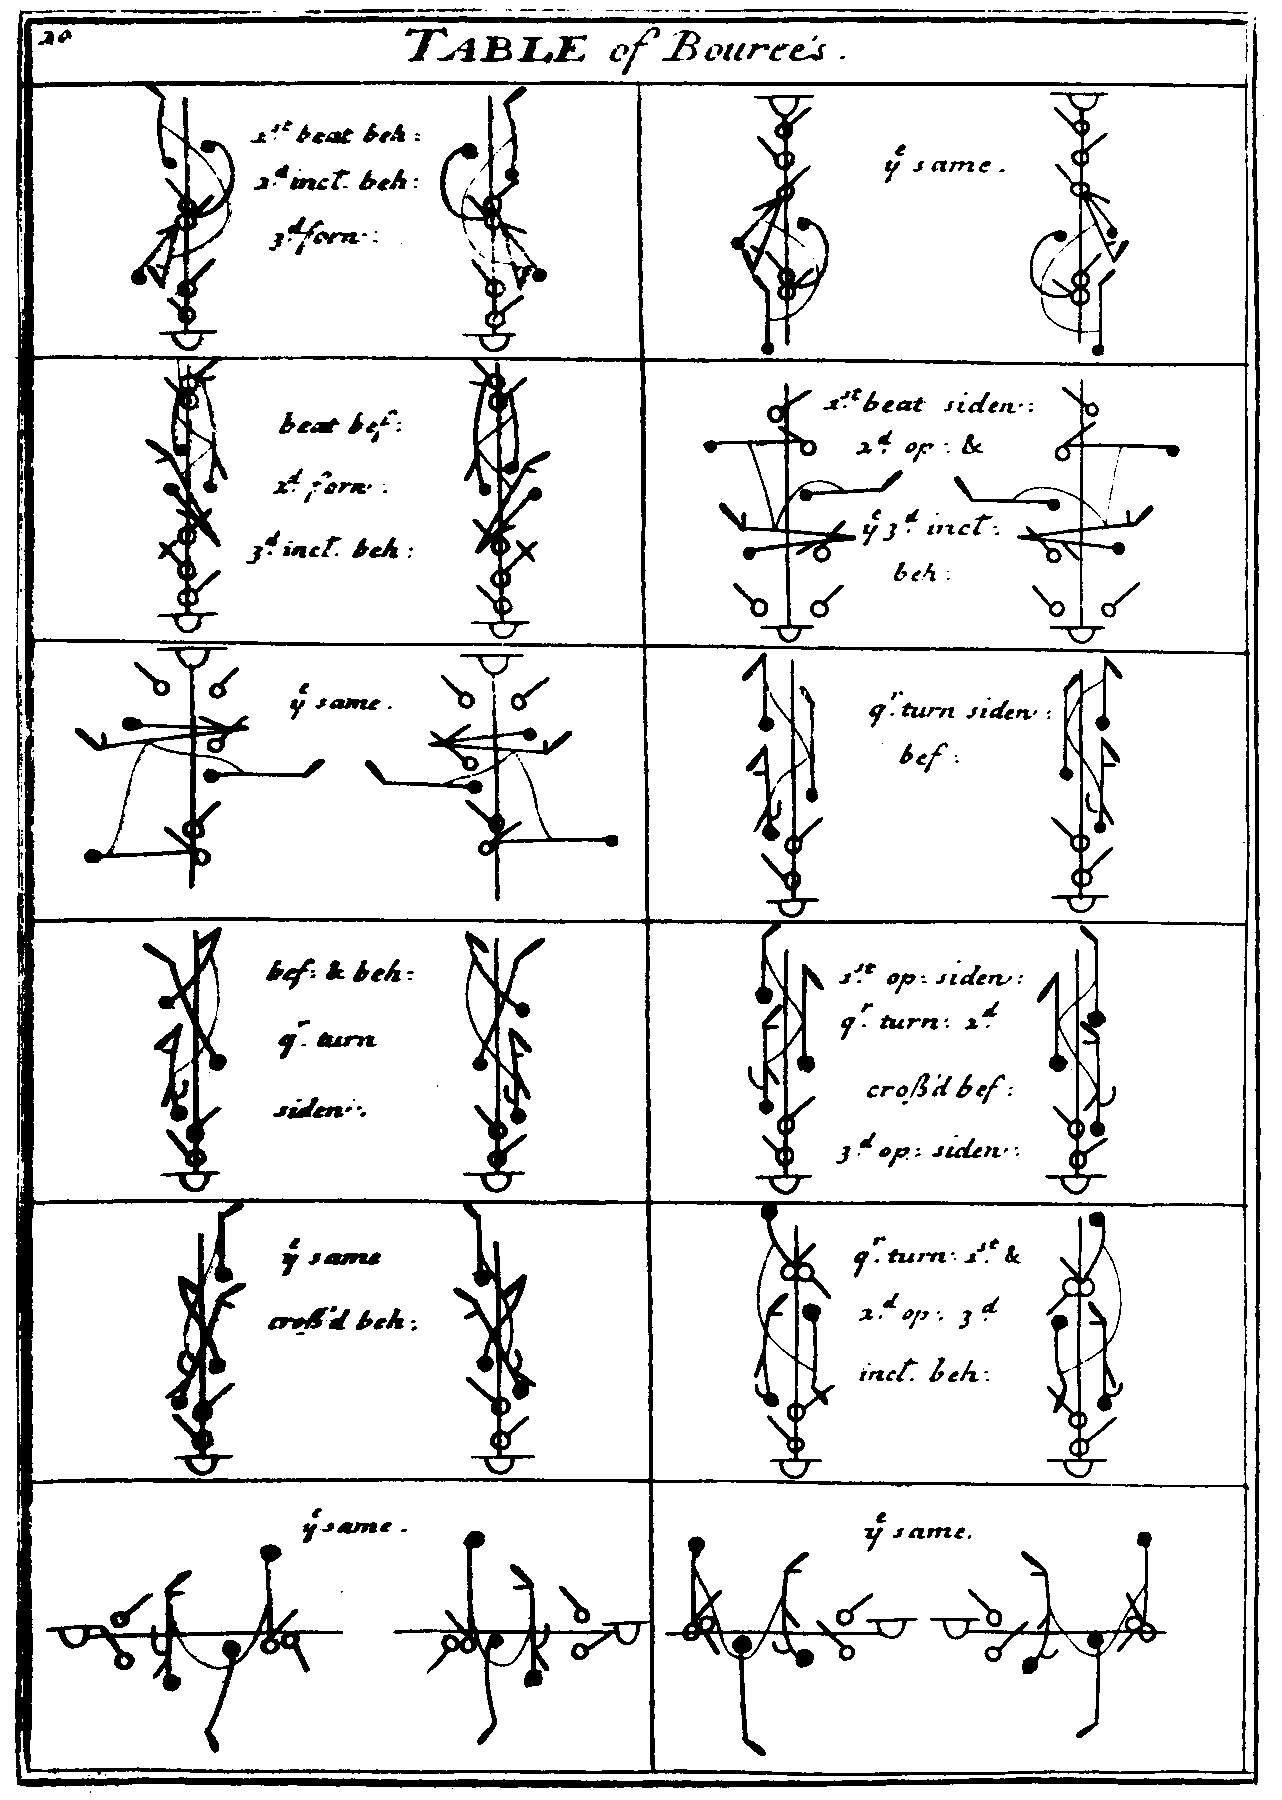 20
TABLE of Bouree's.
1st beat beh:
2d inct. beh:
3d forn:
ye same.
beat bef:
2d forn:
3d inct. beh:
1st beat siden:
2d op: &
ye 3d inct:
beh:
ye same.
qr. turn siden:
bef:
bef: & beh:
qr. turn
siden:.
1st op: siden:
qr. turn: 2d
croß'd bef:
3d op: siden:
ye same
croß'd beh:
qr. turn: 1st &
2d op: 3d
inct. beh:
ye same.
ye same.